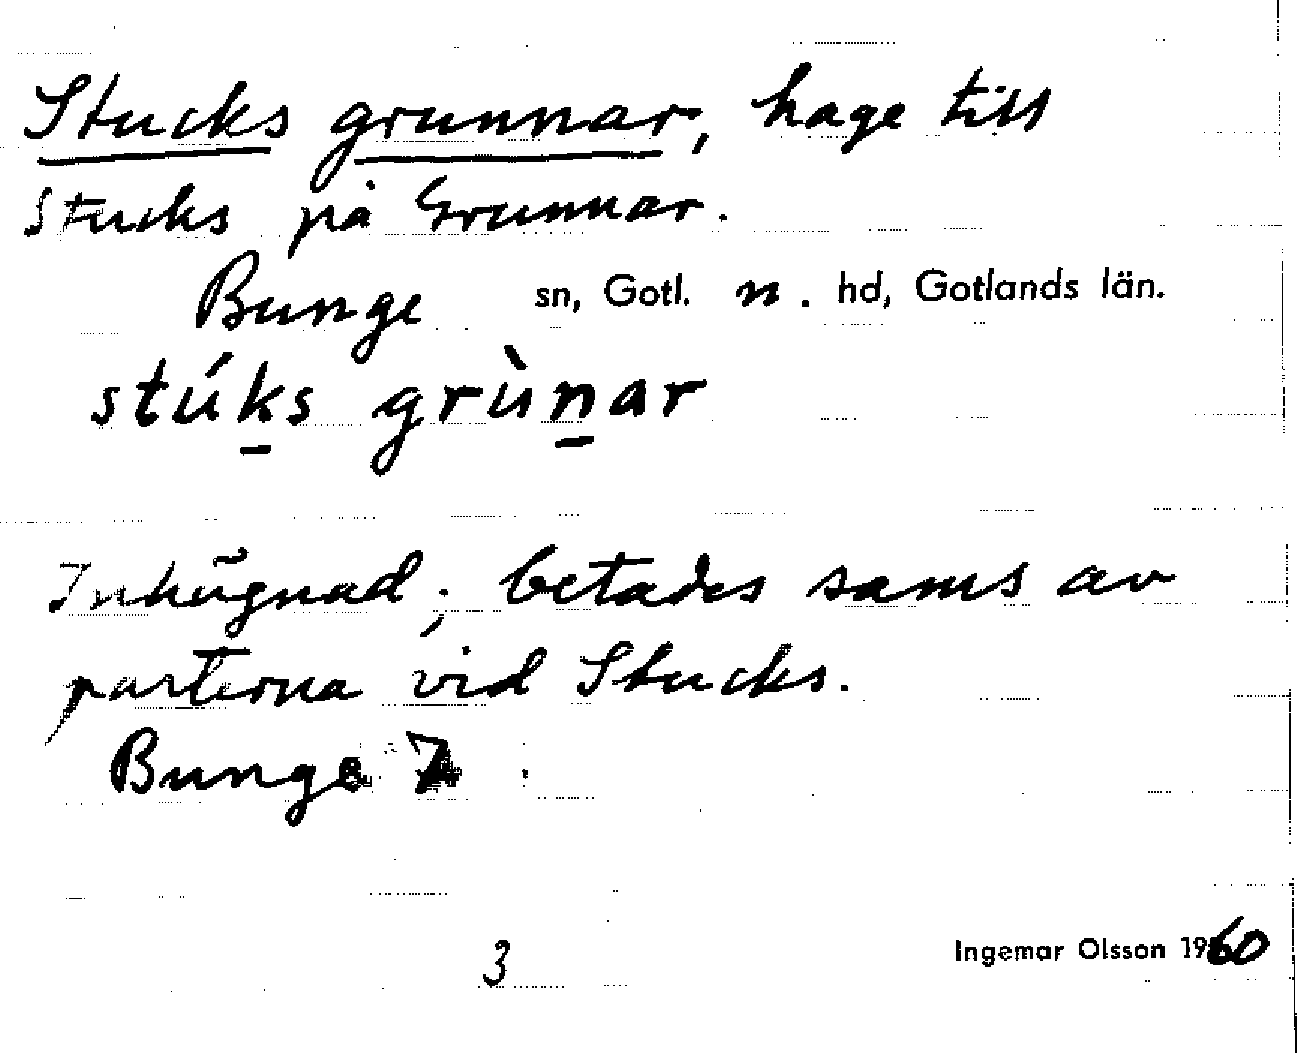 Stucks grunnar, hage till
Stucks på Grunnar.
Bunge sn, Gotl. n. hd, Gotlands län.
stúk̲s grùn̲ar
Inhägnad; betades sams av
parterna vid Stucks.
Bunge
3
Ingemar Olsson 1960